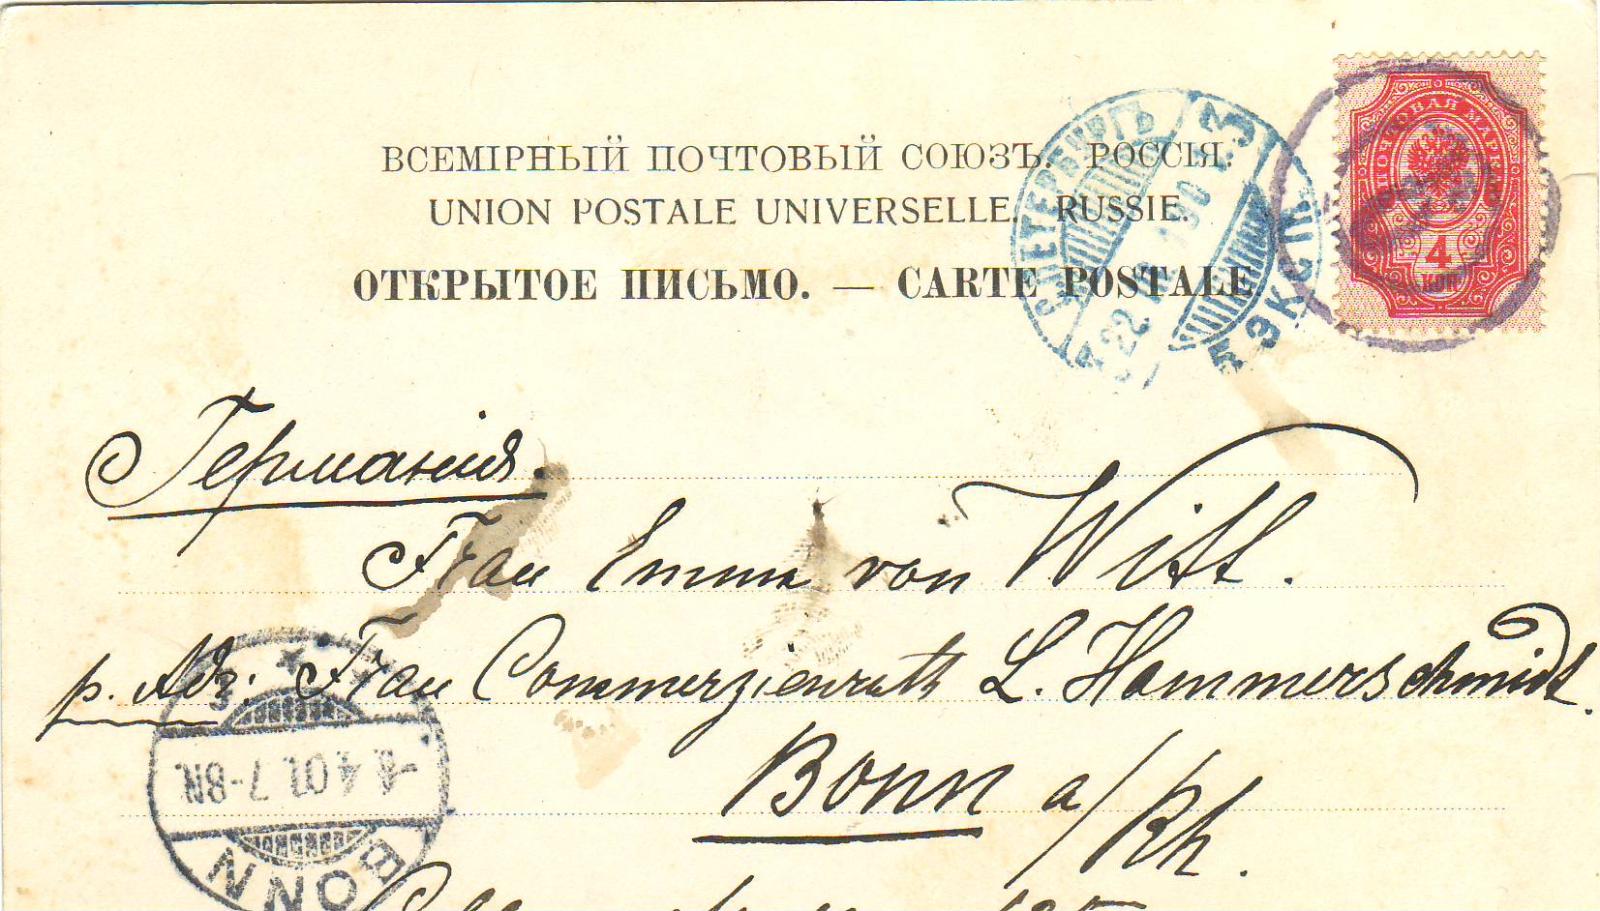 ВСЕМІРНЫЙ ПОЧТОВЫЙ СОЮЗЪ. РОССІЯ.
UNION POSTALE UNIVERSELLE. RUSSIE.
ОТКРЫТОЕ ПИСЬМО. — CARTE POSTALE
ПОЧТОВАЯ МАРКА
4
КОП
С.ПЕТЕРБУРГЪ
22
ЭКСП
Германія.
Frau Emma von Witt.
p. Adr: Frau Commerzienrath L. Hammerschmidt.
Bonn a/Rh.
-8.4.01.7-8N.
BONN